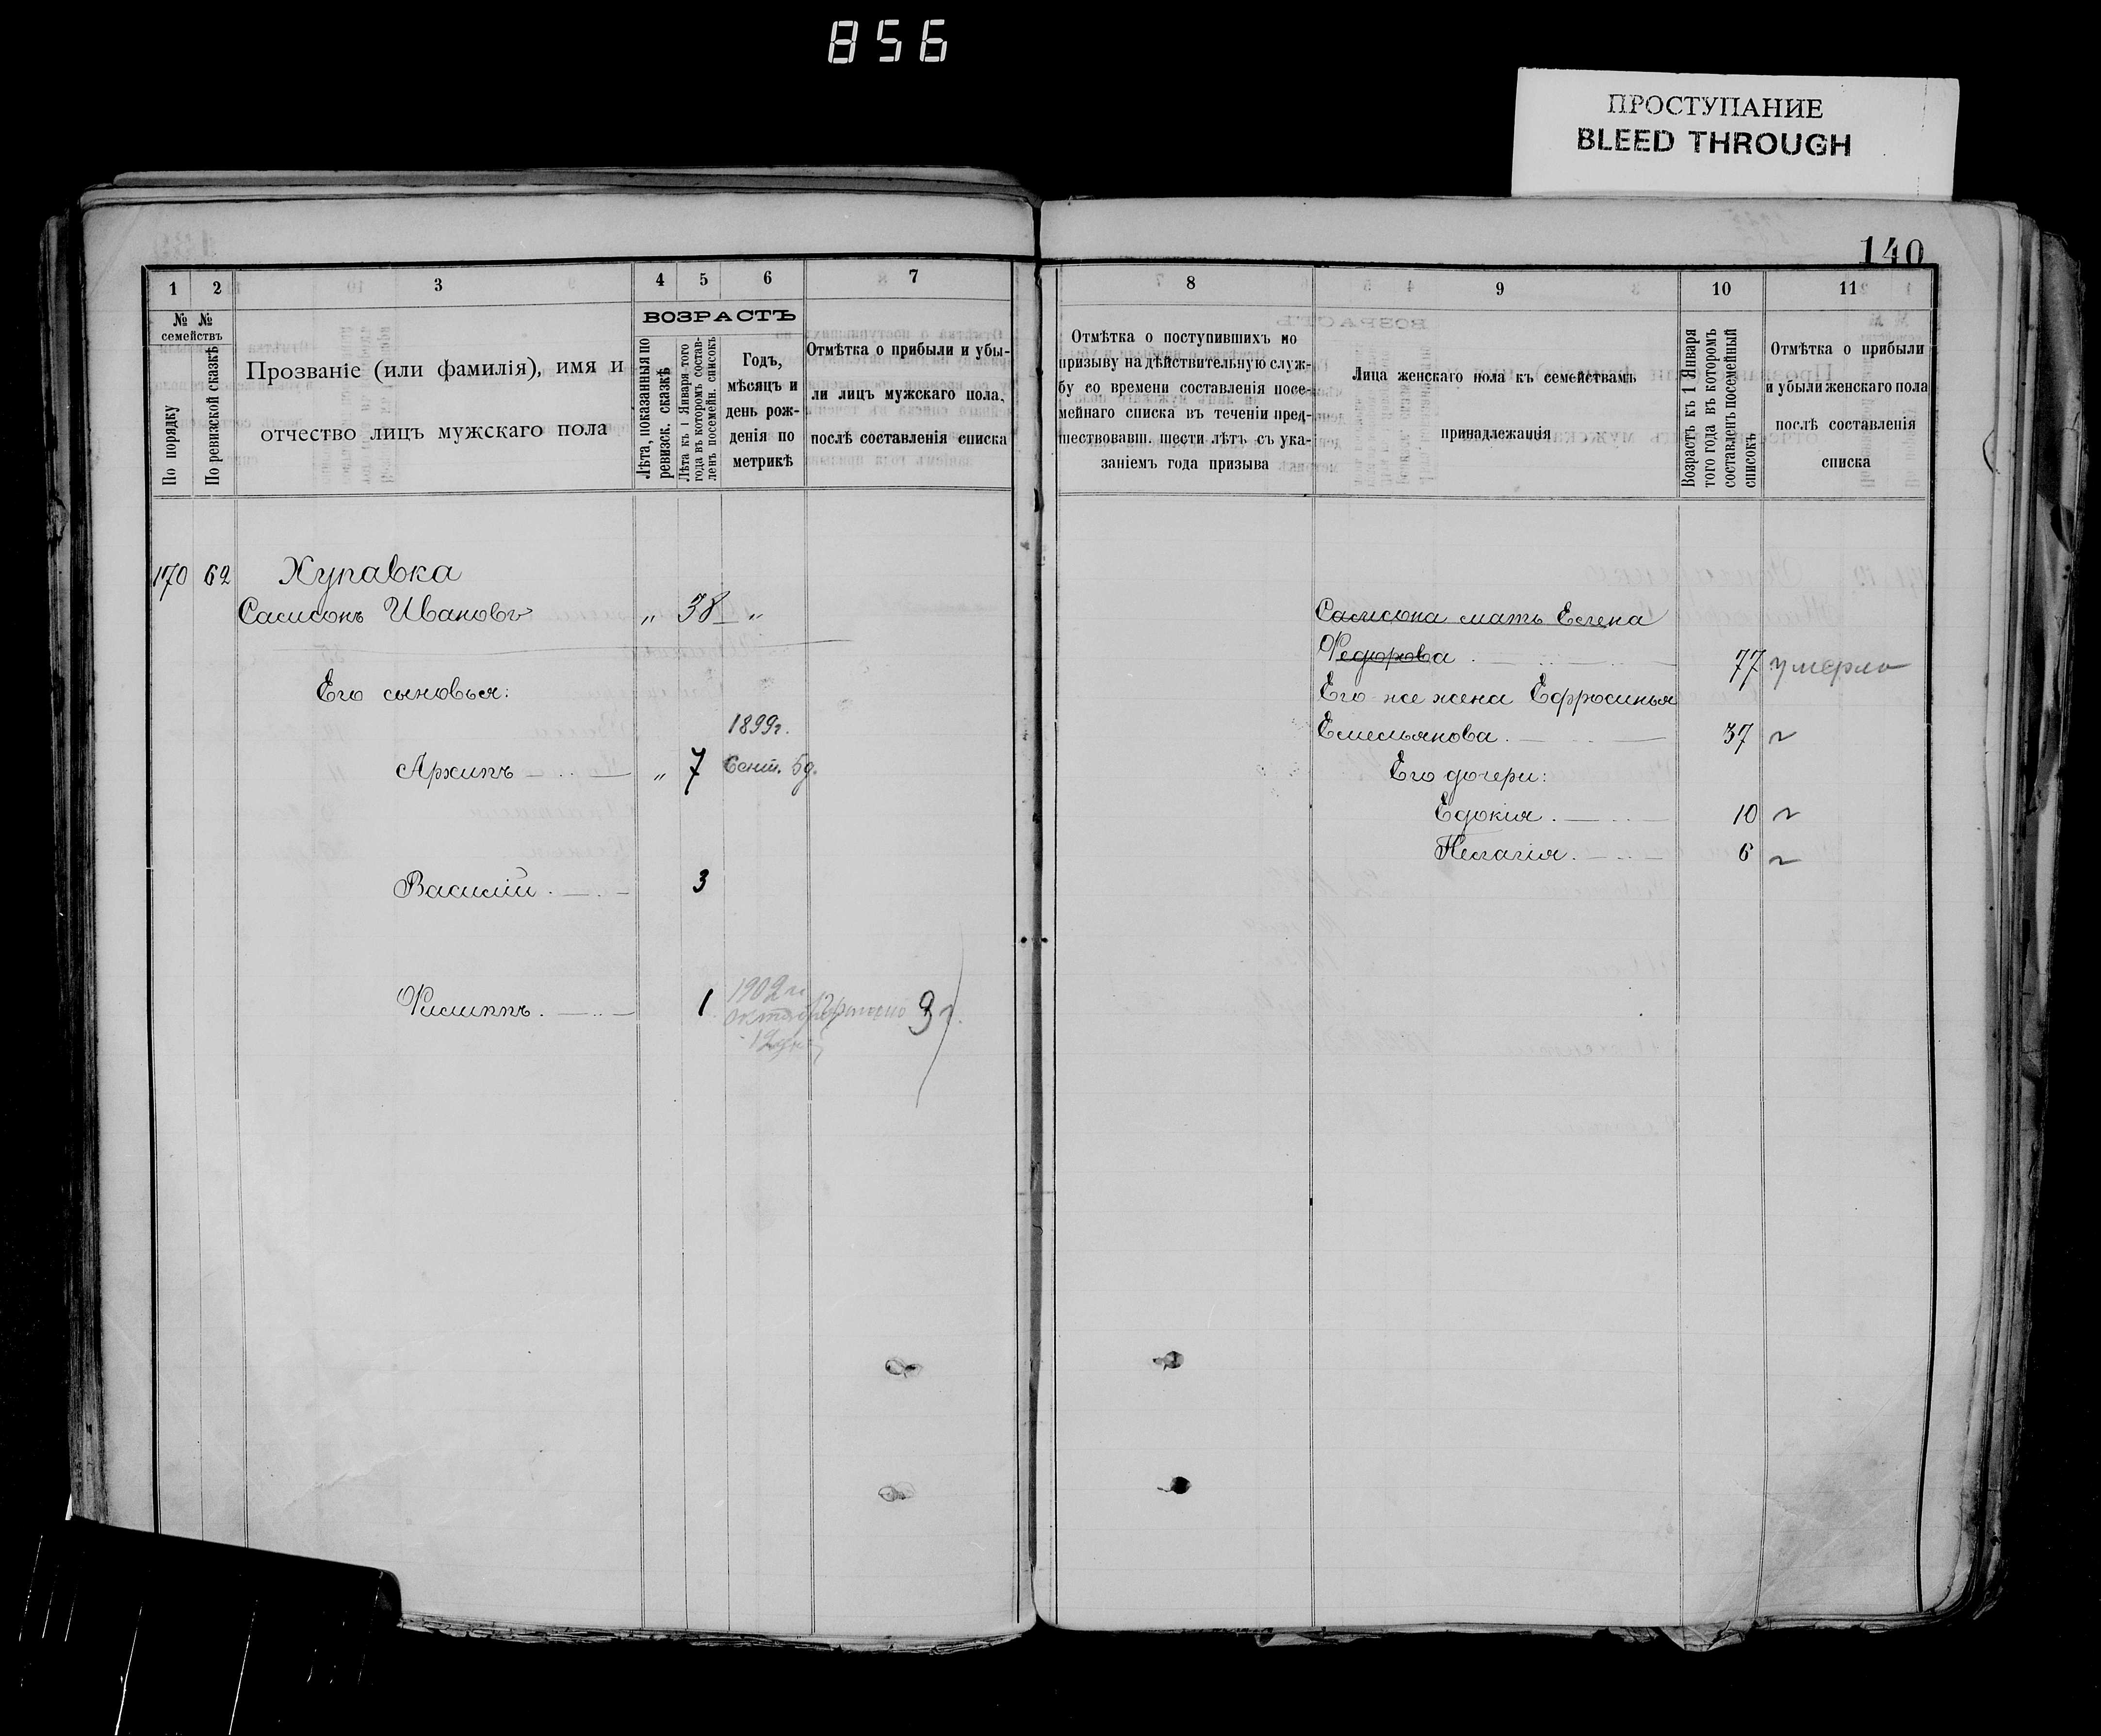 856
ПРОСТУПАНИЕ
BLEED THROUGH
140
1 2 3 4 5 6 7
№ № семействъ
По порядку
По ревизской сказкѣ
Прозваніе (или фамилія), имя и
отчество лицъ мужскаго пола
ВОЗРАСТЪ
Лѣта, показанныя по
ревизск. сказкѣ
Лѣта къ 1 Января того
года въ которомъ состав-
ленъ посемейн. списокъ
Годъ,
мѣсяцъ и
день рож-
денія по
метрикѣ
Отмѣтка о прибыли и убы-
ли лицъ мужскаго пола,
послѣ составленія списка
170 62 Хупавка
Самсонъ Ивановъ „ 38 „
Его сыновья:
1899г.
Архипъ „ 7 Сент. 5д.
Василій 3
Филиппъ 1 1902 г.
октября
12 дня
9
8 9 10 11
Отмѣтка о поступившихъ по
призыву на дѣйствительную служ-
бу со времени составленія посе-
мейнаго списка въ теченіи пред-
шествовавш. шести лѣтъ съ ука-
заніемъ года призыва
Лица женскаго пола къ семействамъ
принадлежащія
Возрастъ къ 1 Января
того года въ которомъ
составленъ посемейный
списокъ
Отмѣтка о прибыли
и убыли женскаго пола
послѣ составленія
списка
Самсона мать Елена
Федорова 77 умерла
Его же жена Ефросинья
Емельянова 37
Его дочери:
Едокія 10
Пелагія 6